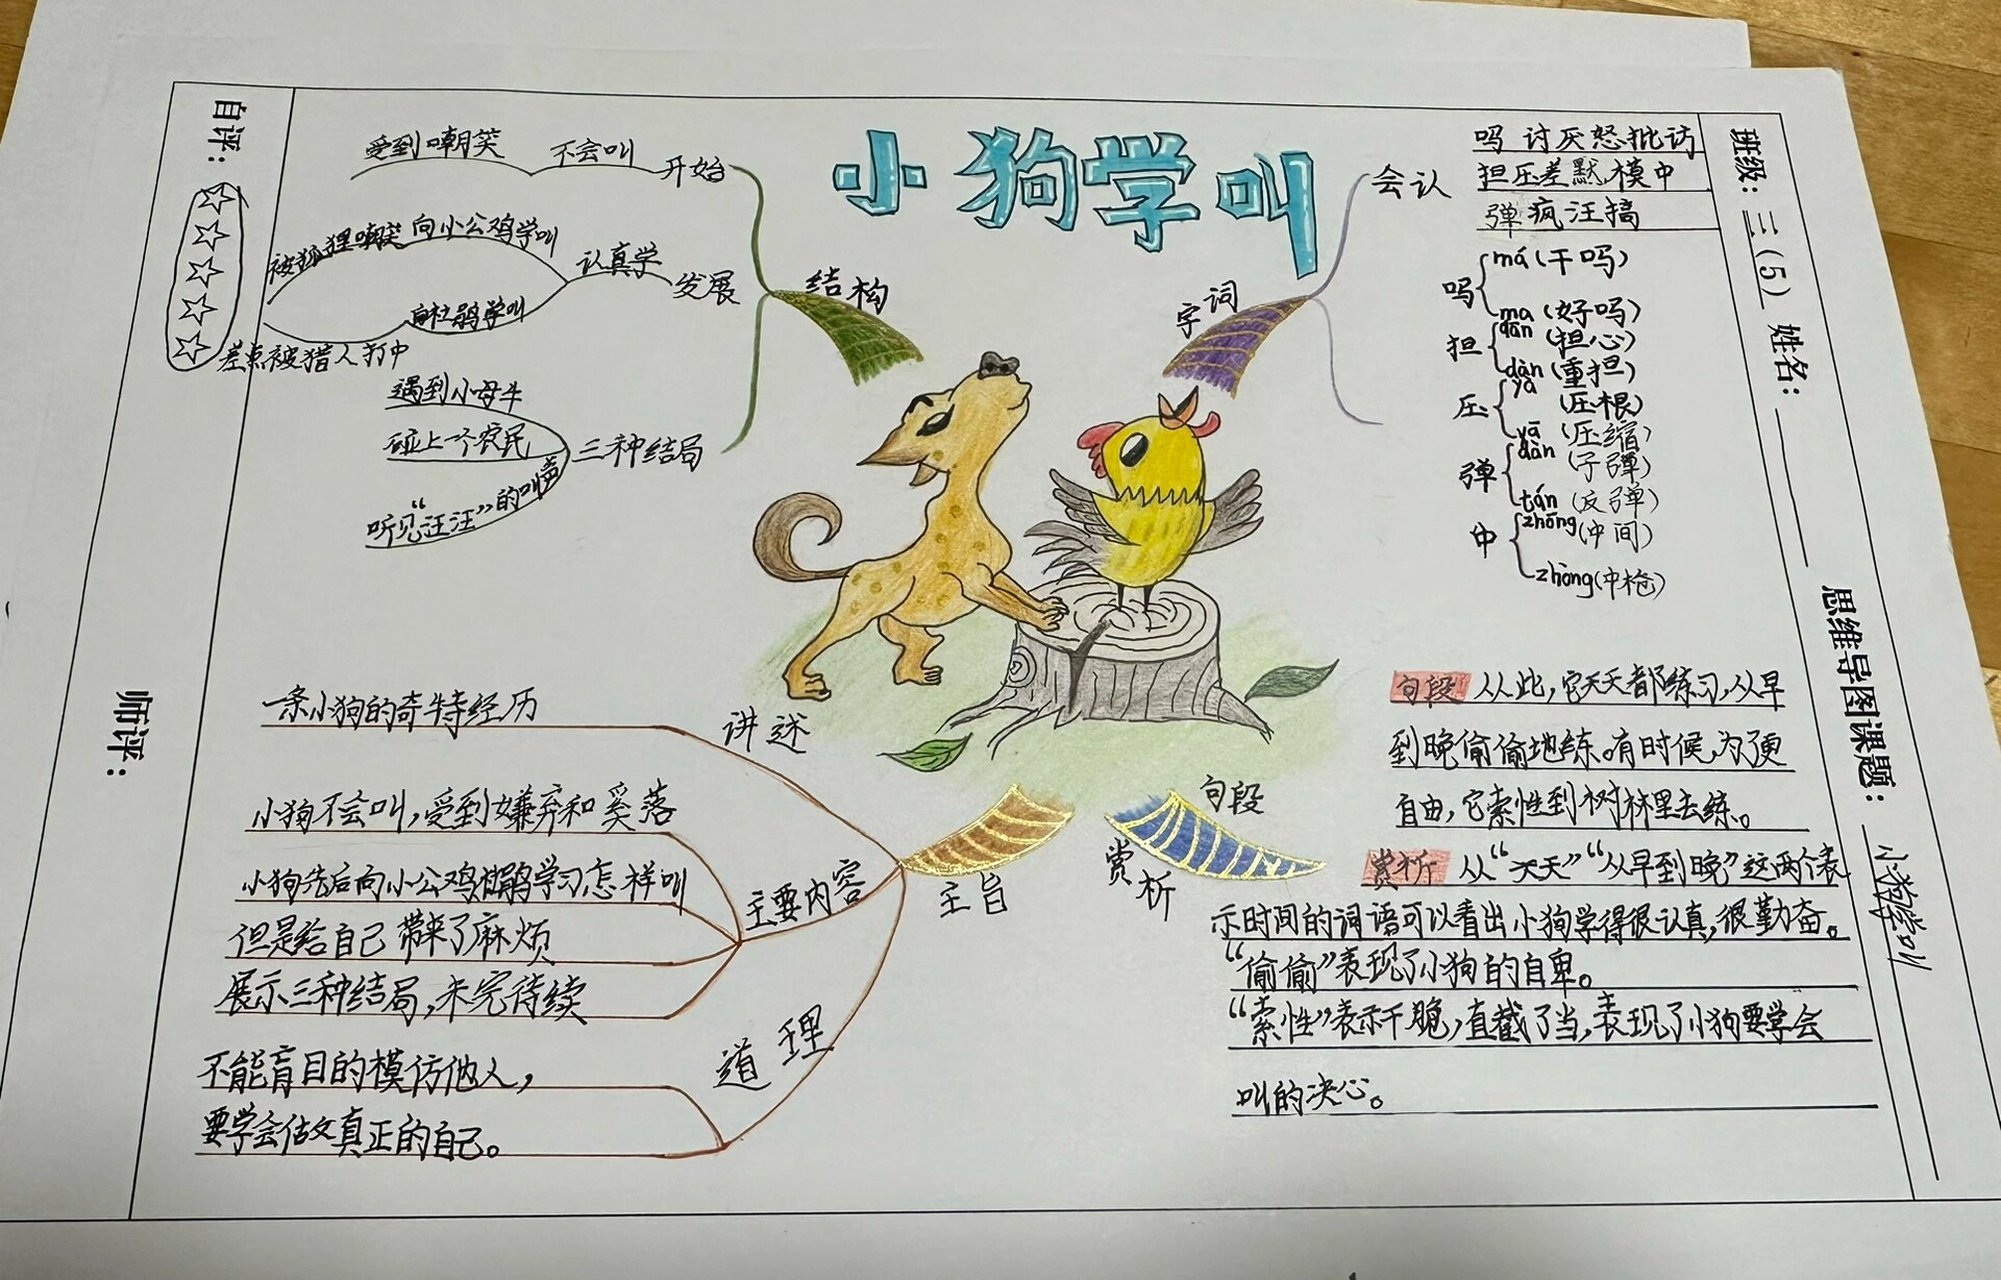 小狗学叫
自评：
师评：
班级：三（5）
姓名：
思维导图课题：小狗学叫
结构
开始
不会叫
受到嘲笑
发展
认真学
向小公鸡学叫
被狐狸嘲笑
向杜鹃学叫
差点被猎人打中
三种结局
遇到小母牛
碰上一个农民
听见“汪汪”的叫声
字词
会认
吗 讨厌怒批访
担压差默模中
弹疯汪搞
吗
má（干吗）
ma（好吗）
担
dān（担心）
dàn（重担）
压
yà（压根）
yā（压缩）
弹
dàn（子弹）
tán（反弹）
中
zhōng（中间）
zhòng（中枪）
主旨
讲述
一条小狗的奇特经历
主要内容
小狗不会叫，受到嫌弃和奚落
小狗先后向小公鸡杜鹃学习怎样叫
但是给自己带来了麻烦
展示三种结局，未完待续
道理
不能盲目的模仿他人，
要学会做真正的自己。
句段
赏析
句段 从此，它天天都练习，从早
到晚偷偷地练。有时候，为了更
自由，它索性到树林里去练。
赏析 从“天天”“从早到晚”这两个表
示时间的词语可以看出小狗学得很认真，很勤奋。
“偷偷”表现了小狗的自卑。
“索性”表示干脆，直截了当，表现了小狗要学会
叫的决心。